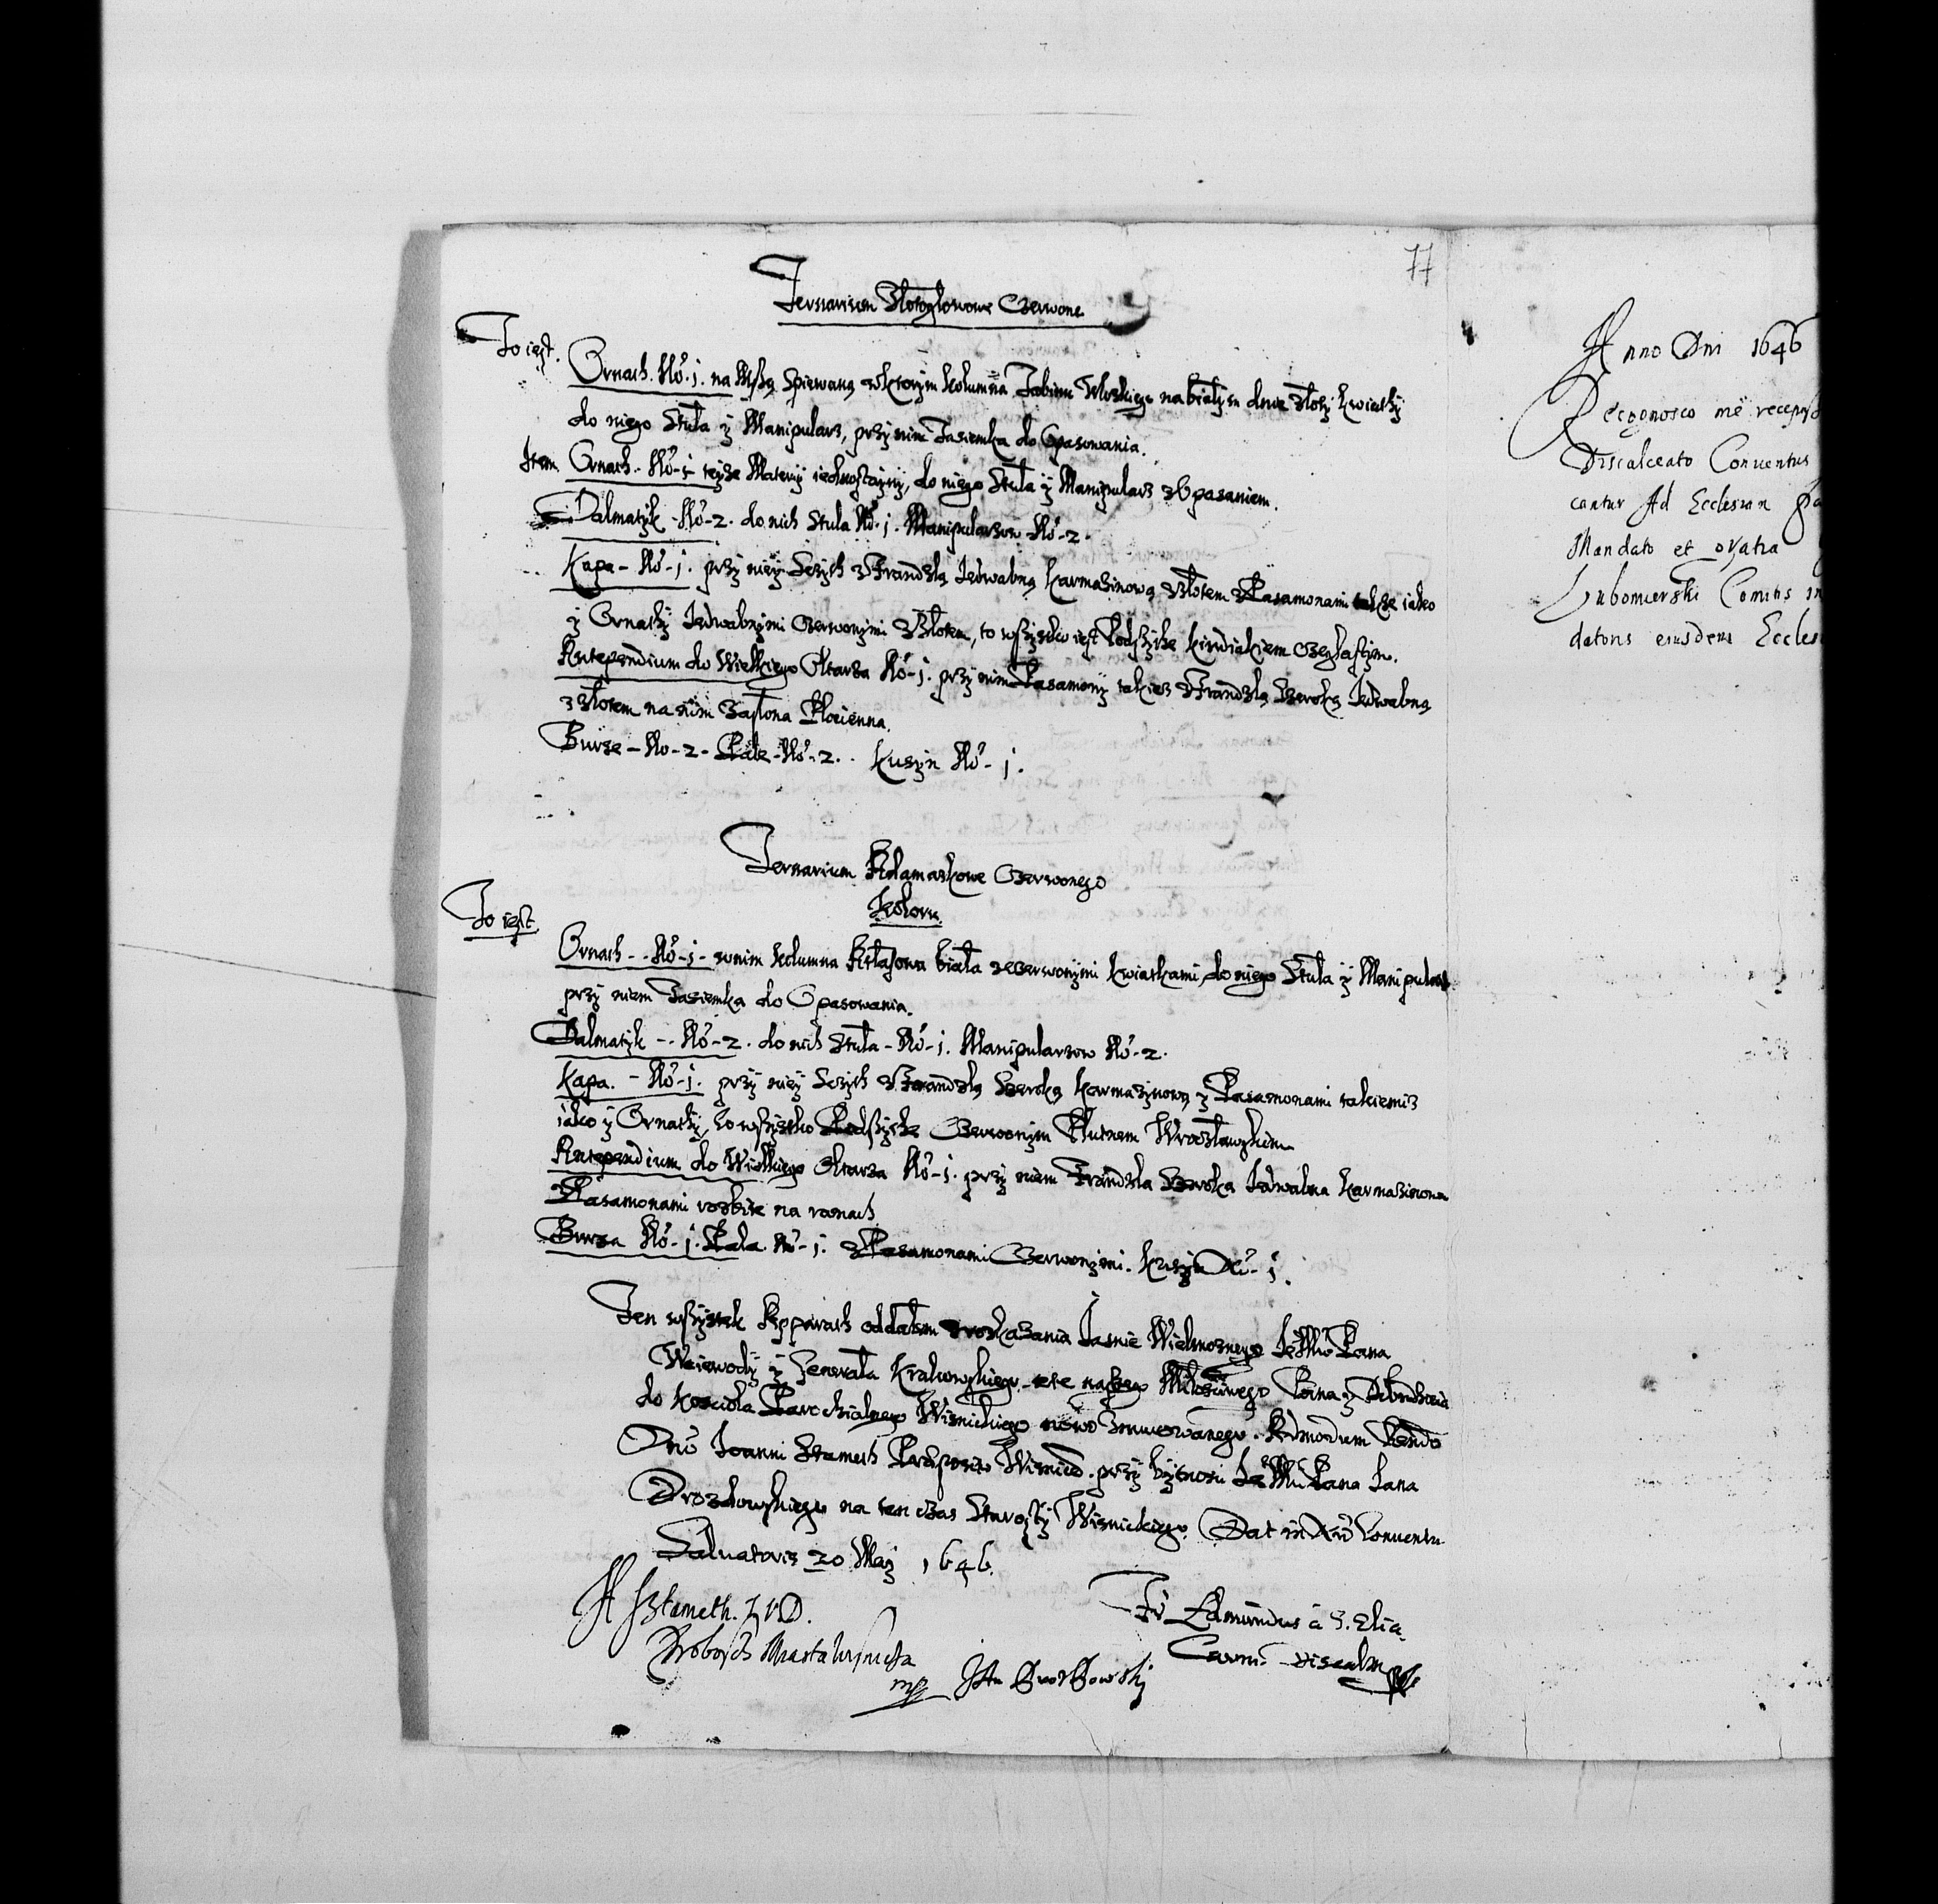 77
Ternarium Złotogłowowe Czerwone
To iest.
Ornath. No. 1. na Mszą Spiewaną w ktorym kolumna Tabinu Włoskiego na białym dnie złoty kwiatky
do niego Stuła y Manipularz, przy nim Tasiemka do Opasowania.
Item Ornath. No-1 teyże Materÿ iednostayny, do niego Stuła ÿ Manipularz z Opasaniem.
Dalmatyk - No-2. do nich Stula No. 1. Manipularzow No-2.
Kapa - No-1. przy nieÿ Szÿch z Frandzlą Jedwabną karmazinową z Złotem z Pasamonami także iako
ÿ Ornatÿ Jedwabnymi Czerwonymi z Złotem, to wszystko iest Podszÿte kindiakiem Ceglastym.
Antependium do Wielkiego Ołtarza No-1. przy nim Pasamonÿ takież z Frandzlą Szeroką Jedwabną
z złotem na nim Zasłona Płocienna.
Burse - No-2- Pale - No-2. Kusÿn No-1.
Ternarium Adamaszkowe Czerwonego
Koloru.
To iest
Ornath - - No-1- w nim kolumna Atłasowa biała z Czerwonÿmi kwiatkami, do niego Stuła ÿ Manipularz
przÿ niem Tasiemka do Opasowania.
Dalmatyk - - No-2. do nich Stula - No-1. Manipularzow No-2.
Kapa. - No-1. przÿ nieÿ Szÿch z Frandzlą Szeroką karmazÿnową z Pasamonami takiemiż
iako ÿ Ornatÿ, to wszystko Podszÿte Czerwonÿm Płutnem Wrocławskim
Antependium do Wielkiego Ołtarza No-1. przÿ niem Frandzla Szeroka Jedwabna karmazinowa
z Pasamonami rozbite na ramach
Bursa No-1. Pala No-1. z Pasamonami Czerwonÿmi. Kusÿn No-1.
Ten wszÿstek Apparath oddałem z roskazania Jasnie Wielmoznego Je Mci Pana
Woiewodÿ ÿ Generała Krakowskiego naszego Miłosciwego Pana ÿ Dobrodzieia
do Kosciola Parochialnego Wisnickiego nowo Admodum Rendo
Dno Joanni Stameth Præposito Wisnicÿ. przÿ bÿtnosci Je Mci Pana Jana
Drozdowskiego na ten czas Starostÿ Wisnickiego. Dat in Nro Conventu
Salvatoris 20 Maÿ 1646.
Sztameth. I V D.
Probosch Miasta Wisnicza
mp
Jan Drozdowskÿ
Fr Edmundus à S. Elia.
Carm. Discalc.
Anno Dni 1646
Recognosco me recep
Discalceato Conuentus
cantur Ad Ecclesiam Pa
Mandato et
Lubomierski Comitis in
datoris eiusdem Eccles